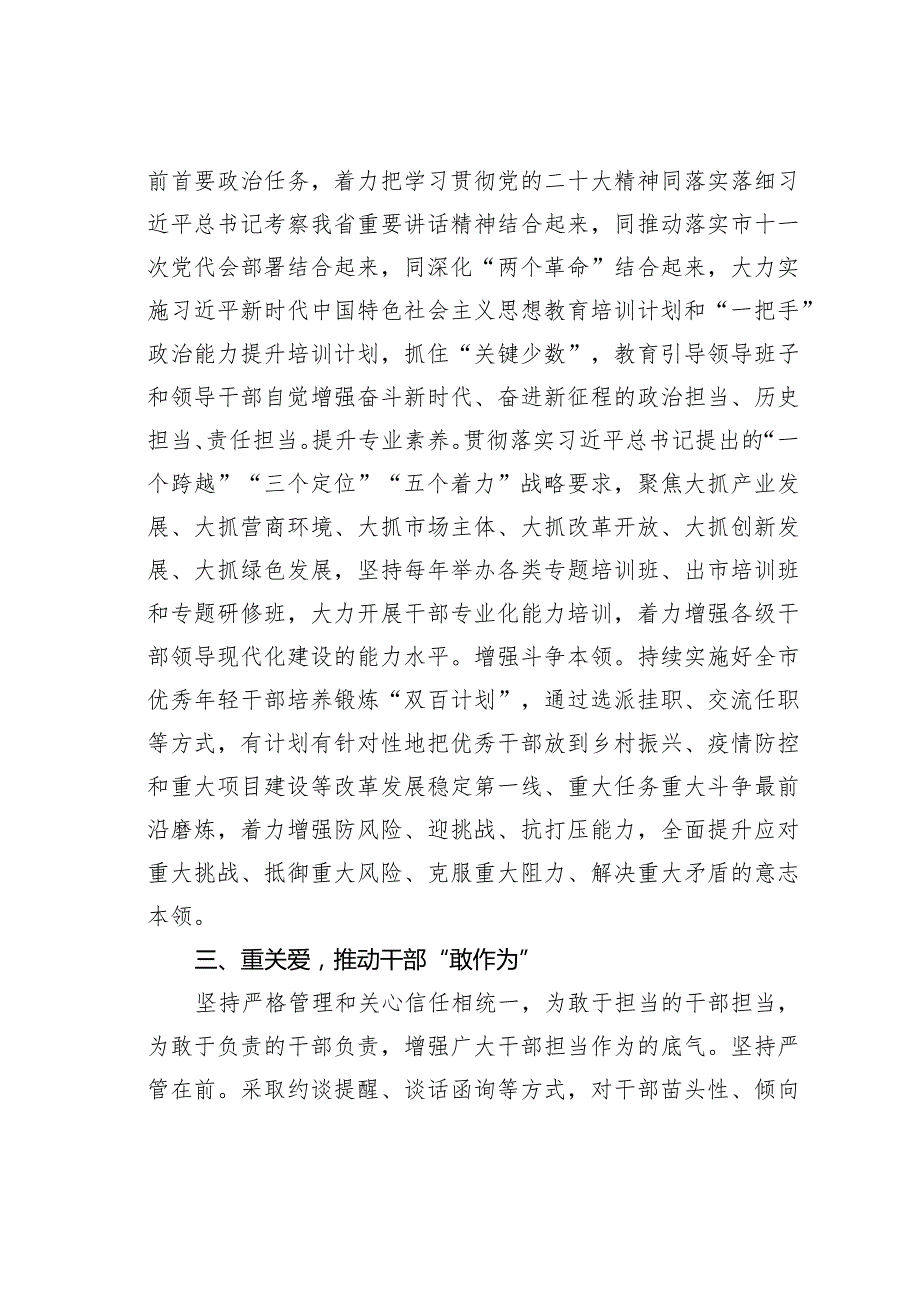 前首要政治任务，着力把学习贯彻党的二十大精神同落实落细习
近平总书记考察我省重要讲话精神结合起来，同推动落实市十一
次党代会部署结合起来，同深化“两个革命”结合起来，大力实
施习近平新时代中国特色社会主义思想教育培训计划和“一把手”
政治能力提升培训计划，抓住“关键少数”，教育引导领导班子
和领导干部自觉增强奋斗新时代、奋进新征程的政治担当、历史
担当、责任担当。提升专业素养。贯彻落实习近平总书记提出的“一
个跨越”“三个定位”“五个着力”战略要求，聚焦大抓产业发
展、大抓营商环境、大抓市场主体、大抓改革开放、大抓创新发
展、大抓绿色发展，坚持每年举办各类专题培训班、出市培训班
和专题研修班，大力开展干部专业化能力培训，着力增强各级干
部领导现代化建设的能力水平。增强斗争本领。持续实施好全市
优秀年轻干部培养锻炼“双百计划”，通过选派挂职、交流任职
等方式，有计划有针对性地把优秀干部放到乡村振兴、疫情防控
和重大项目建设等改革发展稳定第一线、重大任务重大斗争最前
沿磨炼，着力增强防风险、迎挑战、抗打压能力，全面提升应对
重大挑战、抵御重大风险、克服重大阻力、解决重大矛盾的意志
本领。
三、重关爱，推动干部“敢作为”
坚持严格管理和关心信任相统一，为敢于担当的干部担当，
为敢于负责的干部负责，增强广大干部担当作为的底气。坚持严
管在前。采取约谈提醒、谈话函询等方式，对干部苗头性、倾向